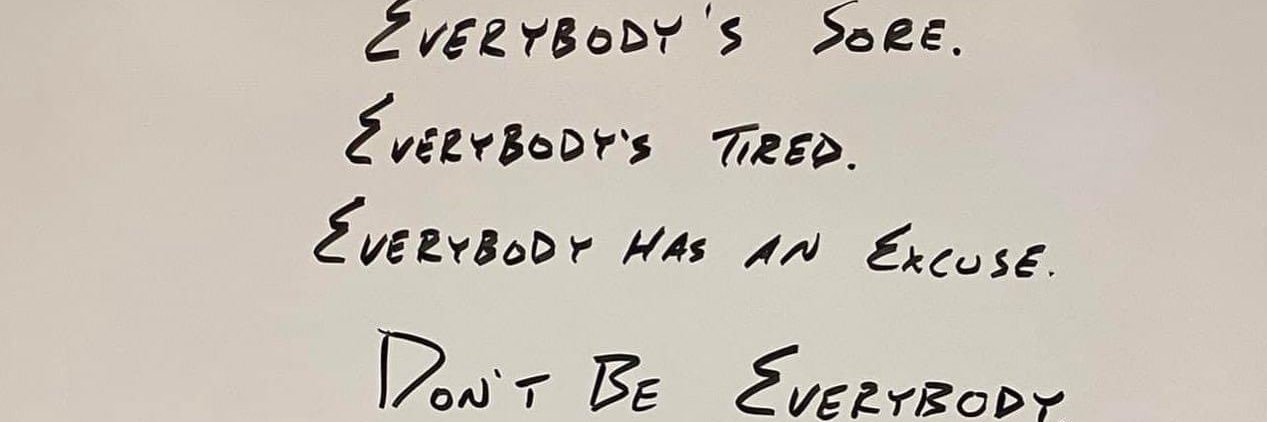 EVERYBODY'S SORE.
EVERYBODY'S TIRED.
EVERYBODY HAS AN EXCUSE.
DON'T BE EVERYBODY